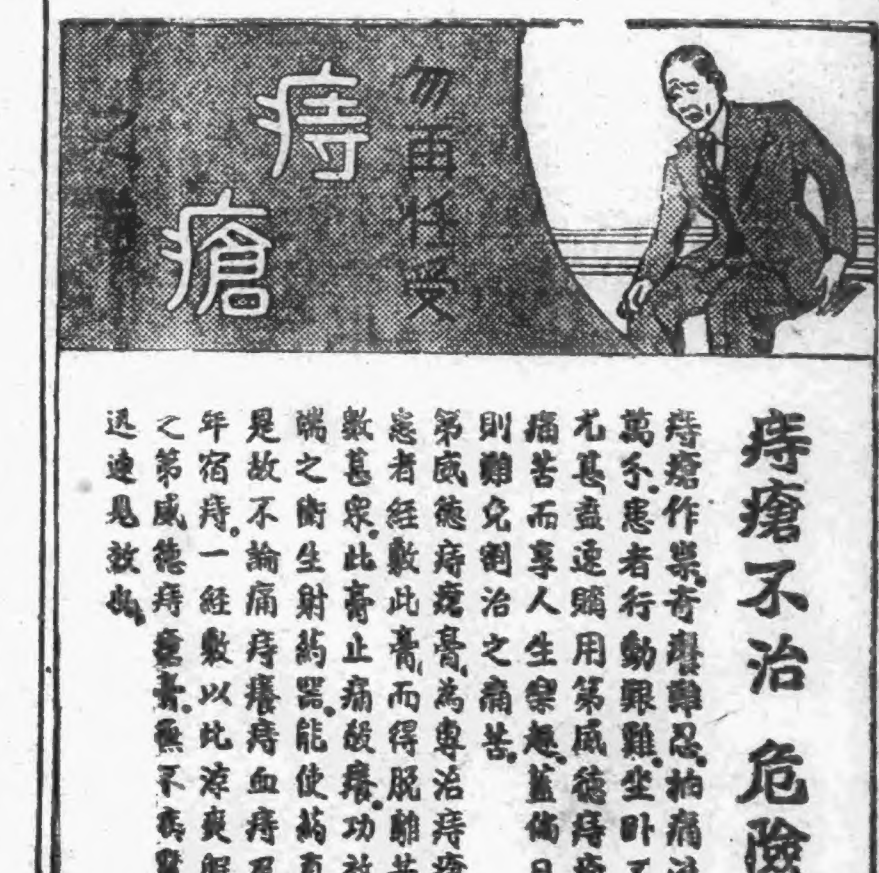 勿再任受
痔瘡
之痛
痔瘡不治 危險
痔瘡作祟奇癢難忍抽痛
萬分患者行動艱難坐卧
尤甚盍速購用第威德痔瘡
痛苦而享人生樂趣蓋倘
則難免割治之痛苦
第威德痔瘡膏為專治痔瘡
患者經敷此膏而得脫離
數甚眾此膏止痛殺癢功效
端之衛生射藥器能使藥
是故不論痛痔癢痔血痔
年宿痔一經敷以此清爽
之第威德痔瘡膏無不
迅速見效也